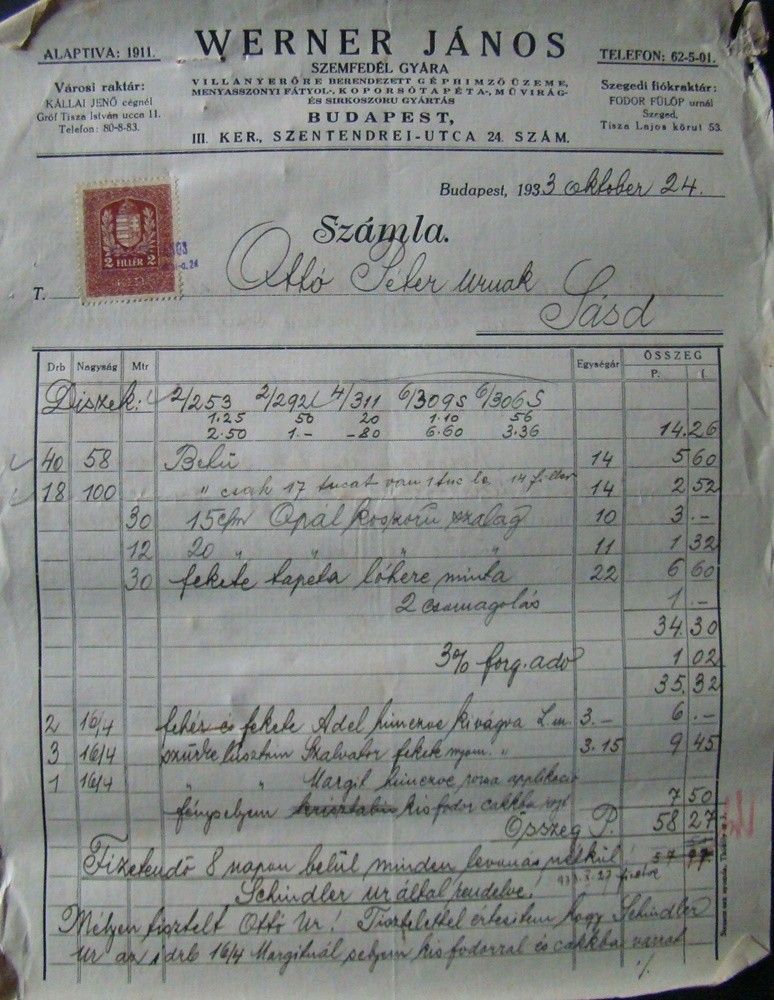 ALAPTIVA: 1911.
WERNER JÁNOS
TELEFON: 62-5-01.
SZEMFEDÉL GYÁRA
VILLANYERŐRE BERENDEZETT GÉPHIMZŐ ÜZEME,
MENYASSZONYI FÁTYOL-, KOPORSÓTAPÉTA-, MŰVIRÁG-
ÉS SIRKOSZORU GYÁRTÁS
BUDAPEST,
III. KER., SZENTENDREI-UTCA 24. SZÁM.
Városi raktár:
KÁLLAI JENŐ cégnél
Gróf Tisza István ucca 11.
Telefon: 80-8-83.
Szegedi fiókraktár:
FODOR FÜLÖP urnál
Szeged,
Tisza Lajos körut 53.
Budapest, 1933 oktober 24.
2 FILLÉR 2
Számla.
T. Ottó Péter urnak
Sásd
Drb Nagyság Mtr Egységár ÖSSZEG
P. f.
Diszek: 2/253 2/292 4/311 6/3095 6/3065
1.25 50 20 1.10 56
2.50 1.- -80 6.60 3.36 14.26
40 58 Betü 14 5 60
18 100 " csak 17 tucat van 1 tuc le 14 fillér 14 2 52
30 15 c/m Opál koszorú szalag 10 3 .-
12 20 " " " " 11 1 32
30 fekete tapéta lóhere minta 22 6 60
2 csomagolás 1 -
34.30
3% forg. adó 1 02
35.32
2 16/4 fehér és fekete Adel himezve kivágva L.m. 3.- 6 .-
3 16/4 szürke lüsztem Szalvator fekete nyom. " 3.15 9 45
1 16/4 " " Margit himezve rózsa applikáció
fényselyem kisfodor cakkba 7 50
Összeg P. 58 27
Fizetendő 8 napon belül minden levonás nélkül!
Schindler ur által rendelve!
Mélyen tisztelt Ottó Ur! Tisztelettel értesitem hogy Schindler
ur az 1 drb 16/4 Margitnál selyem kisfodorral és cakkba varrat
./.